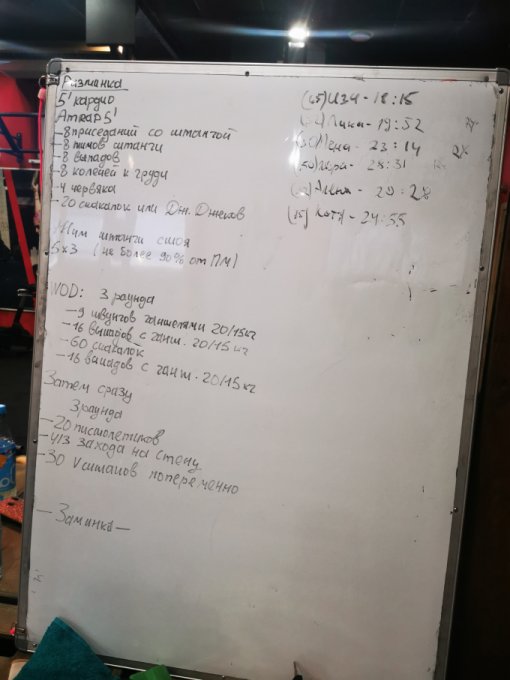 Разминка
5' кардио
Amrap 5'
-8 приседаний со штангой
-8 жимов штанги
-8 выпадов
-8 коленей к груди
-4 червяка
-20 скакалок или Дж. Джеков
Жим штанги стоя
5x3 (не более 90% от ПМ)
WOD: 3 раунда
-9 швунгов гантелями 20/15 кг
-16 выпадов с гант. 20/15 кг
-60 скакалок
-16 выпадов с гант. 20/15 кг
Затем сразу
3 раунда
-20 пистолетиков
-4/3 захода на стену
-30 V ситапов попеременно
-Заминка-
- 18:15
- 19:52
- 23:14
- 28:31
- 29:28
(15) Катя - 24:55